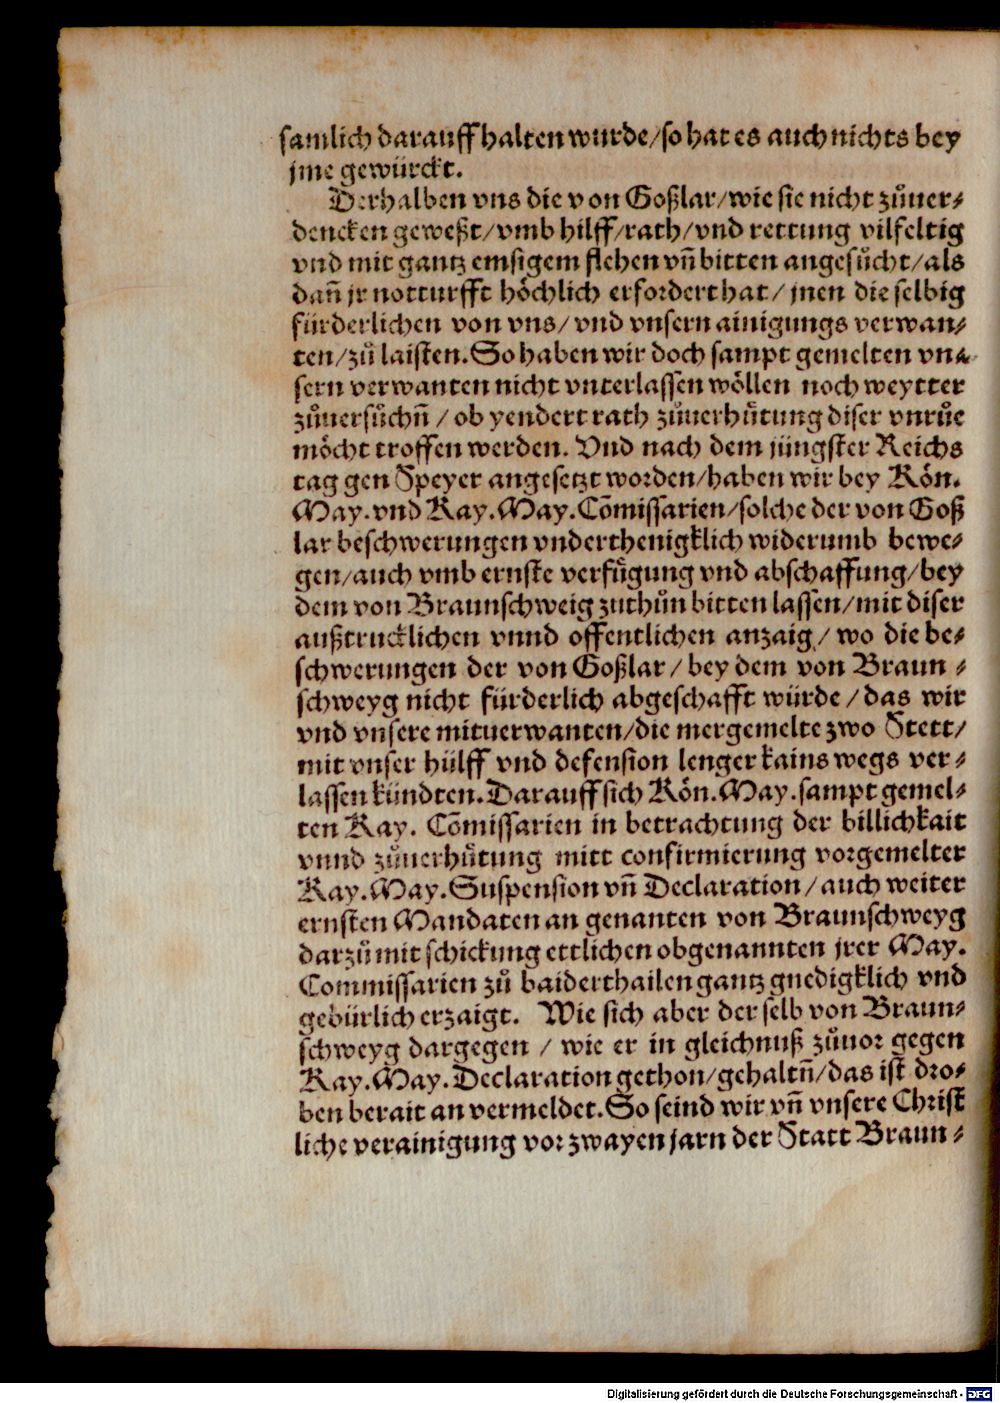 samlich darauff halten wurde/so hat es auch nichts bey
jme gewürckt.
Derhalben vns die von Goßlar/wie sie nicht zůuer⸗
dencken geweßt/vmb hilff/rath/vnd rettung vilfeltig
vnd mit gantz emsigem flehen vñ bitten angesůcht/als
dañ jr notturfft höchlich erfordert hat/jnen die selbig
fürderlichen von vns/vnd vnsern ainigungs verwan⸗
ten/zů laisten. So haben wir doch sampt gemelten vn⸗
sern verwanten nicht vnterlassen wöllen noch weytter
zůuersůchñ/ob yendert rath zůuerhůtung diser vnrůe
möcht troffen werden. Vnd nach dem jüngster Reichs
tag gen Speyer angesetzt worden/haben wir bey Kön.
May. vnd Kay. May. Cõmissarien/solche der von Goß
lar beschwerungen vnderthenigklich widerumb bewe⸗
gen/auch vmb ernste verfůgung vnd abschaffung/bey
dem von Braunschweig zuthůn bitten lassen/mit diser
außtrucklichen vnnd offentlichen anzaig/wo die be⸗
schwerungen der von Goßlar/bey dem von Braun⸗
schweyg nicht fürderlich abgeschafft würde/das wir
vnd vnsere mituerwanten/die mergemelte zwo Stett/
mit vnser hülff vnd defension lenger kains wegs ver⸗
lassen kündten. Darauff sich Kön. May. sampt gemel⸗
ten Kay. Cõmissarien in betrachtung der billichkait
vnnd zůuerhůtung mitt confirmierung vorgemelter
Kay. May. Suspension vñ Declaration/auch weiter
ernsten Mandaten an genanten von Braunschweyg
darzů mit schickung ettlichen obgenannten jrer May.
Commissarien zů baiderthailen gantz gnedigklich vnd
gebürlich erzaigt. Wie sich aber der selb von Braun⸗
schweyg dargegen/wie er in gleichnuß zůuor gegen
Kay. May. Declaration gethon/gehaltñ/das ist dro⸗
ben berait an vermeldet. So seind wir vñ vnsere Christ
liche verainigung vor zwayen jarn der Statt Braun⸗
Digitalisierung gefördert durch die Deutsche Forschungsgemeinschaft - DFG